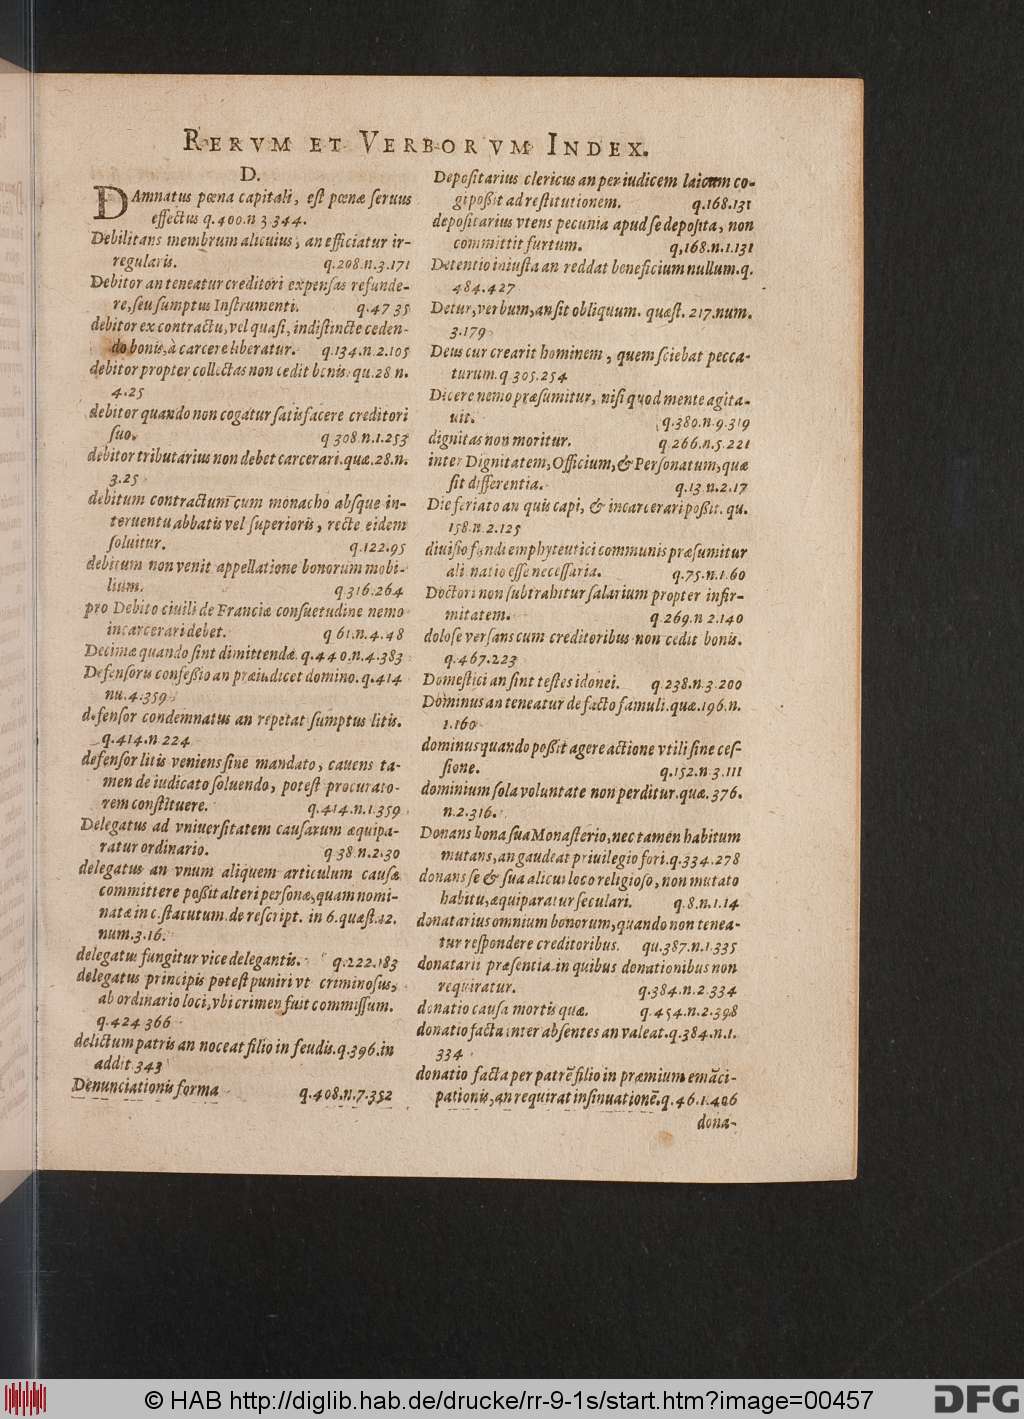 RERVM ET VERBORVM INDEX.
D.
DAmnatus pœna capitali, est pœnæ seruus
effectus q.400.n 3 344.
Debilitans membrum alicuius, an efficiatur ir-
regularis. q.208.n.3.171
Debitor an teneatur creditori expensas refunde-
re, seu sumptus Instrumenti. q.47 35
debitor ex contractu, vel quasi, indistincte ceden-
do bonis, à carcere liberatur. q.134.n.2.105
debitor propter collectas non cedit bonis. qu.28 n.
4.25
debitor quando non cogatur satisfacere creditori
suo. q 308.n.1.253
debitor tributarius non debet carcerari.quæ.28.n.
3.25
debitum contractum cum monacho absque in-
teruentu abbatis vel superioris, recte eidem
soluitur. q.122.95
debitum non venit appellatione bonorum mobi-
lium. q.316.264
pro Debito ciuili de Franciæ consuetudine nemo
incarcerari debet. q 61.n.4.48
Decimæ quando sint dimittendæ. q.440.n.4.383
Defensoris confeßio an præiudicet domino.q.414
nu.4.359
defensor condemnatus an repetat sumptus litis.
q.414.n 224
defensor litis veniens sine mandato, cauens ta-
men de iudicato soluendo, potest procurato-
rem constituere. q.414.n.1.359
Delegatus ad vniuersitatem causarum æquipa-
ratur ordinario. q 38.n.2.30
delegatus an vnum aliquem articulum causæ
committere poßit alteri personæ, quam nomi-
natæ in c.statutum.de rescript. in 6.quæst.42.
num.3.16.
delegatus fungitur vice delegantis. q.222.183
delegatus principis potest puniri vt criminosus,
ab ordinario loci, vbi crimen fuit commissum.
q.424 366
delictum patris an noceat filio in feudis.q.396.in
addit.343
Denunciationis forma q.408.n.7.352
Depositarius clericus an per iudicem laicum co-
gi poßit ad restitutionem. q.168.131
depositarius vtens pecunia apud se deposita, non
committit furtum. q,168.n.1.131
Detentio iniusta an reddat beneficium nullum.q.
484.427
Detur, verbum, an sit obliquum. quæst. 217.num.
3.179
Deus cur crearit hominem, quem sciebat pecca-
turum.q 305.254
Dicere nemo præsumitur, nisi quod mente agita-
uit. q.380.n.9.319
dignitas non moritur. q 266.n.5.221
inter Dignitatem, Officium, & Personatum, quæ
sit differentia. q.13.n.2.17
Die feriato an quis capi, & incarcerari poßit. qu.
158.n.2.125
diuisio fundi emphyteutici communis præsumitur
alienatio esse necessaria. q.75.n.1.60
Doctori non subtrahitur salarium propter infir-
mitatem. q.269.n 2.140
dolose versans cum creditoribus non cedit bonis.
q.467.223
Domestici an sint testes idonei. q.238.n.3.200
Dominus an teneatur de facto famuli.quæ.196.n.
1.160
dominus quando poßit agere actione vtili sine ces-
sione. q.152.n.3.111
dominium sola voluntate non perditur.quæ.376.
n.2.316.
Donans bona sua Monasterio, nec tamen habitum
mutans, an gaudeat priuilegio fori.q.334.278
donans se & sua alicui loco religioso, non mutato
habitu, æquiparatur seculari. q.8.n.1.14
donatarius omnium bonorum, quando non tenea-
tur respondere creditoribus. qu.387.n.1.335
donatarii præsentia in quibus donationibus non
requiratur. q.384.n.2.334
donatio causa mortis quæ. q.454.n.2.398
donatio facta inter absentes an valeat.q.384.n.1.
334
donatio facta per patrē filio in præmium emāci-
pationis, an requirat insinuationē.q.46.1.406
dona-
© HAB http://diglib.hab.de/drucke/rr-9-1s/start.htm?image=00457
DFG